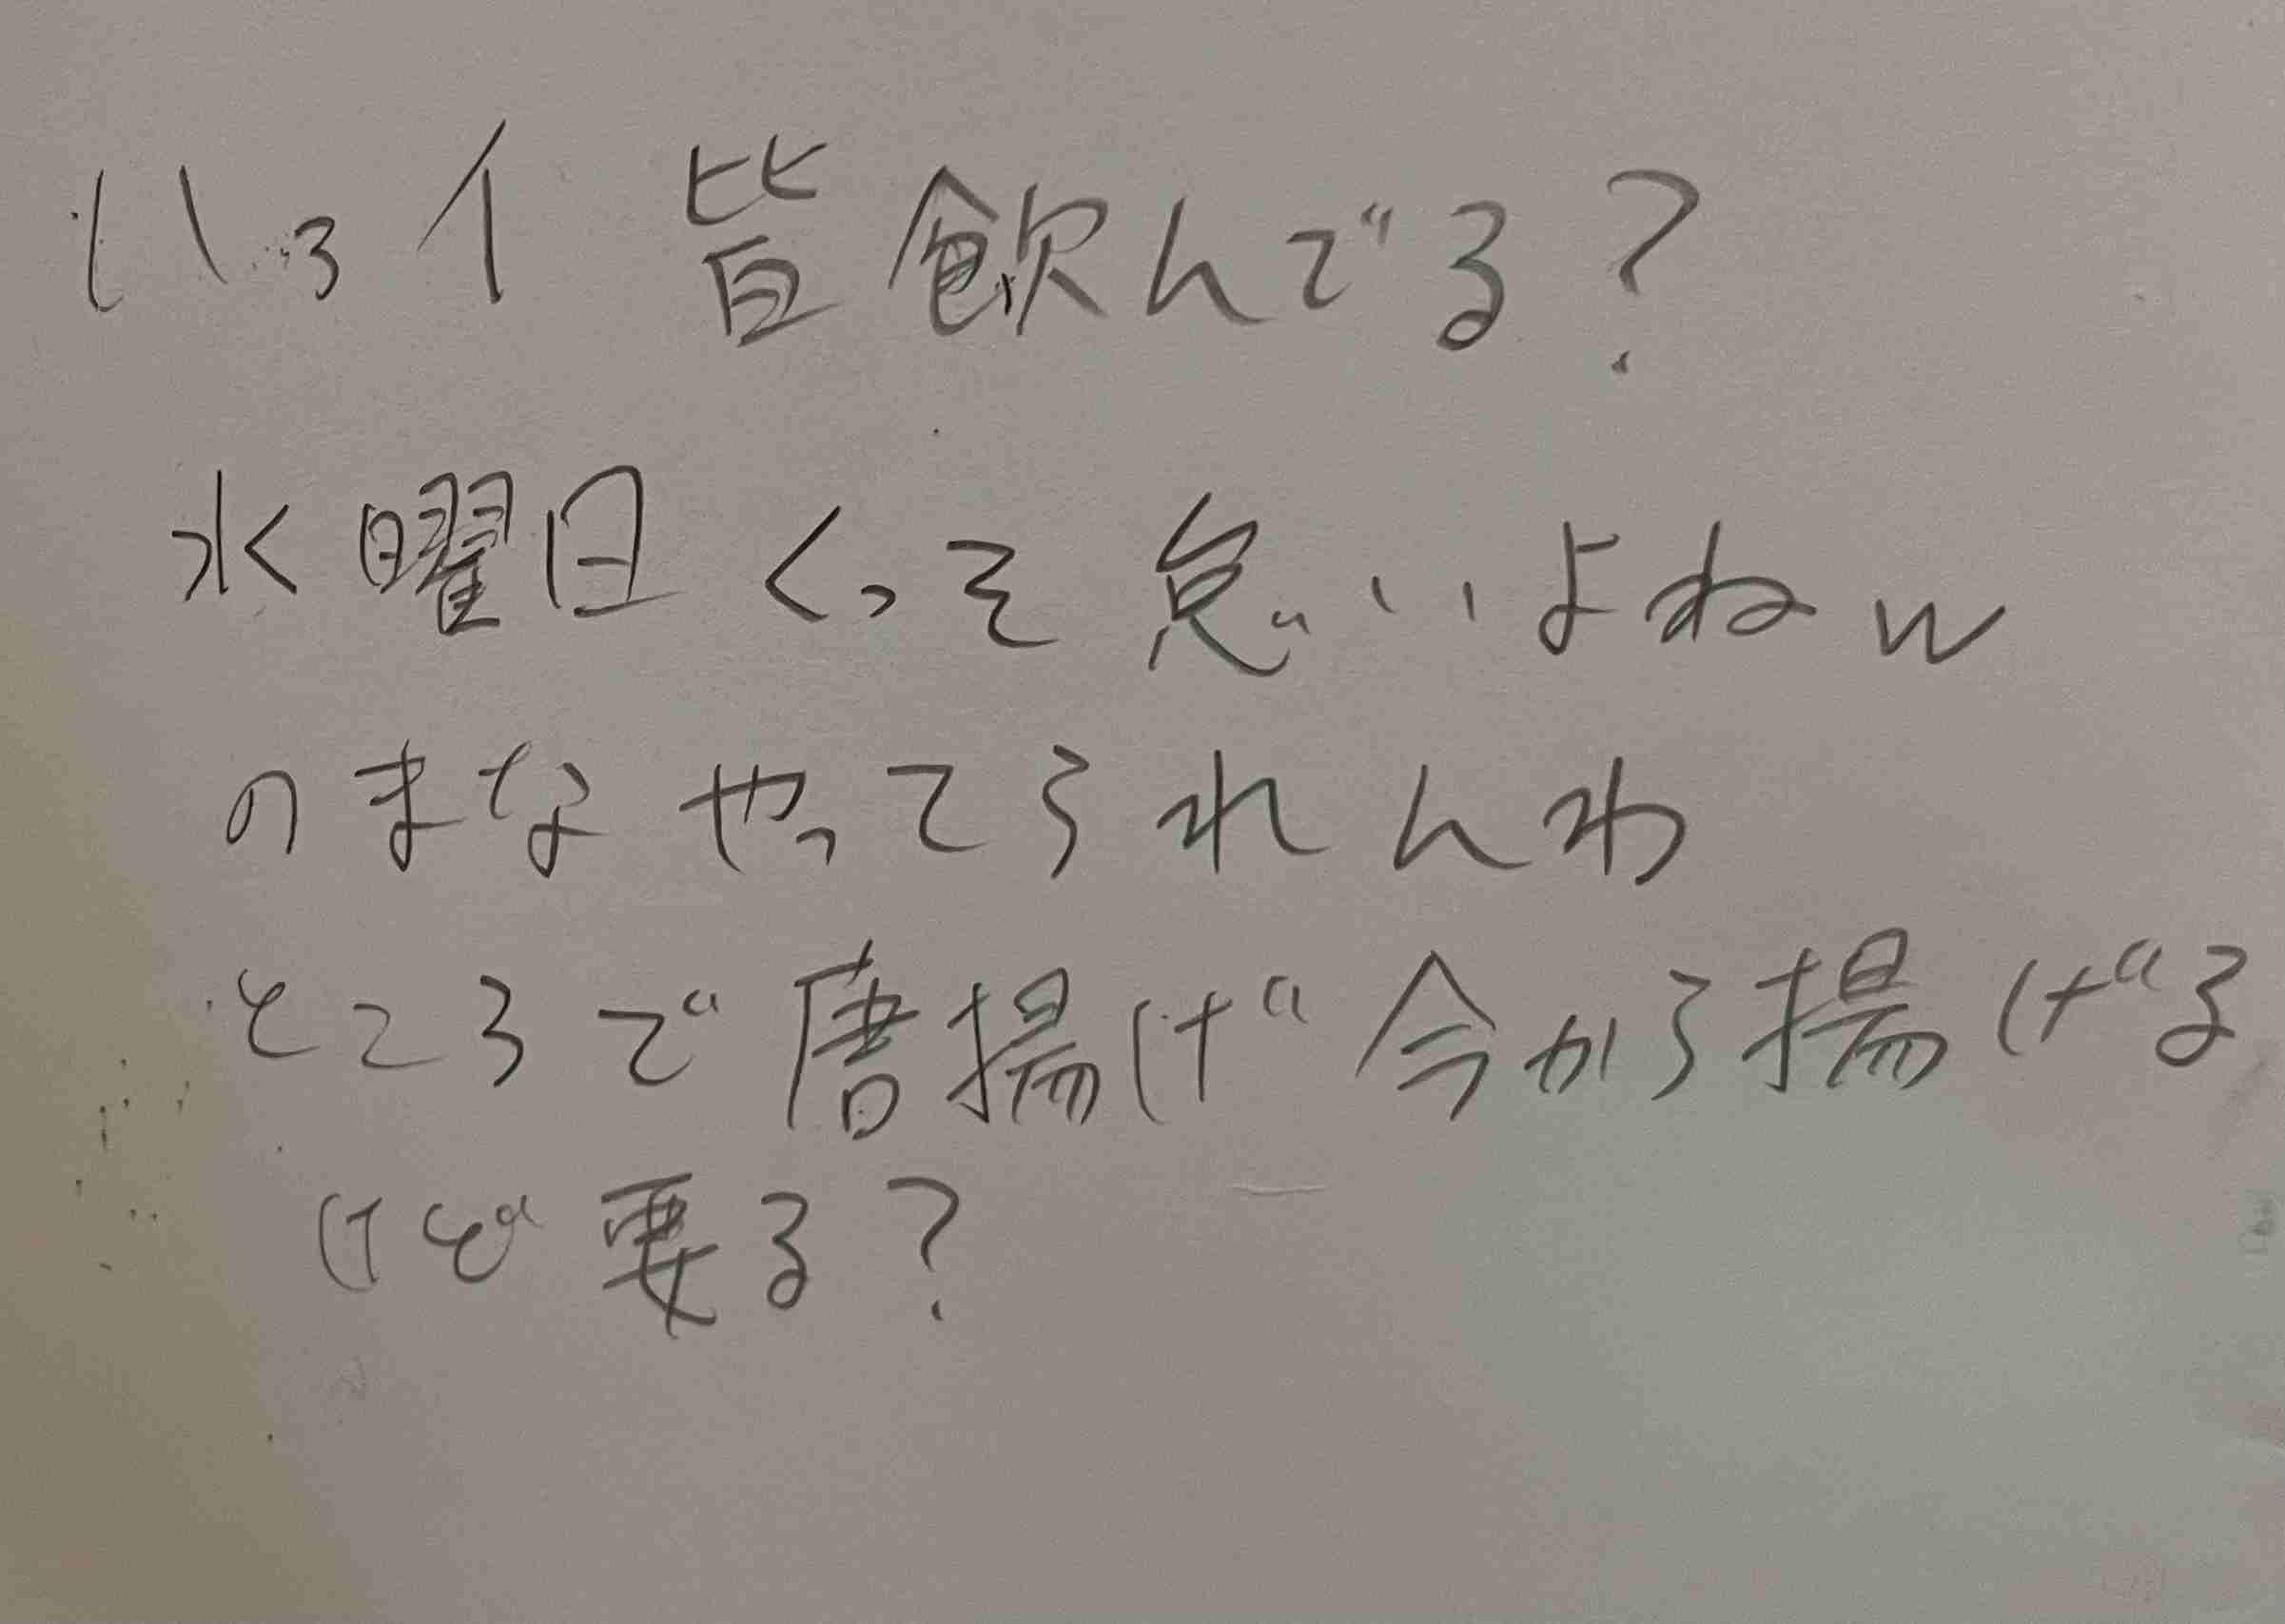 いぇイ 皆飲んでる?
水曜日くっそ怠いよねw
のまなやってられんわ
ところで唐揚げ今から揚げる
けど要る?